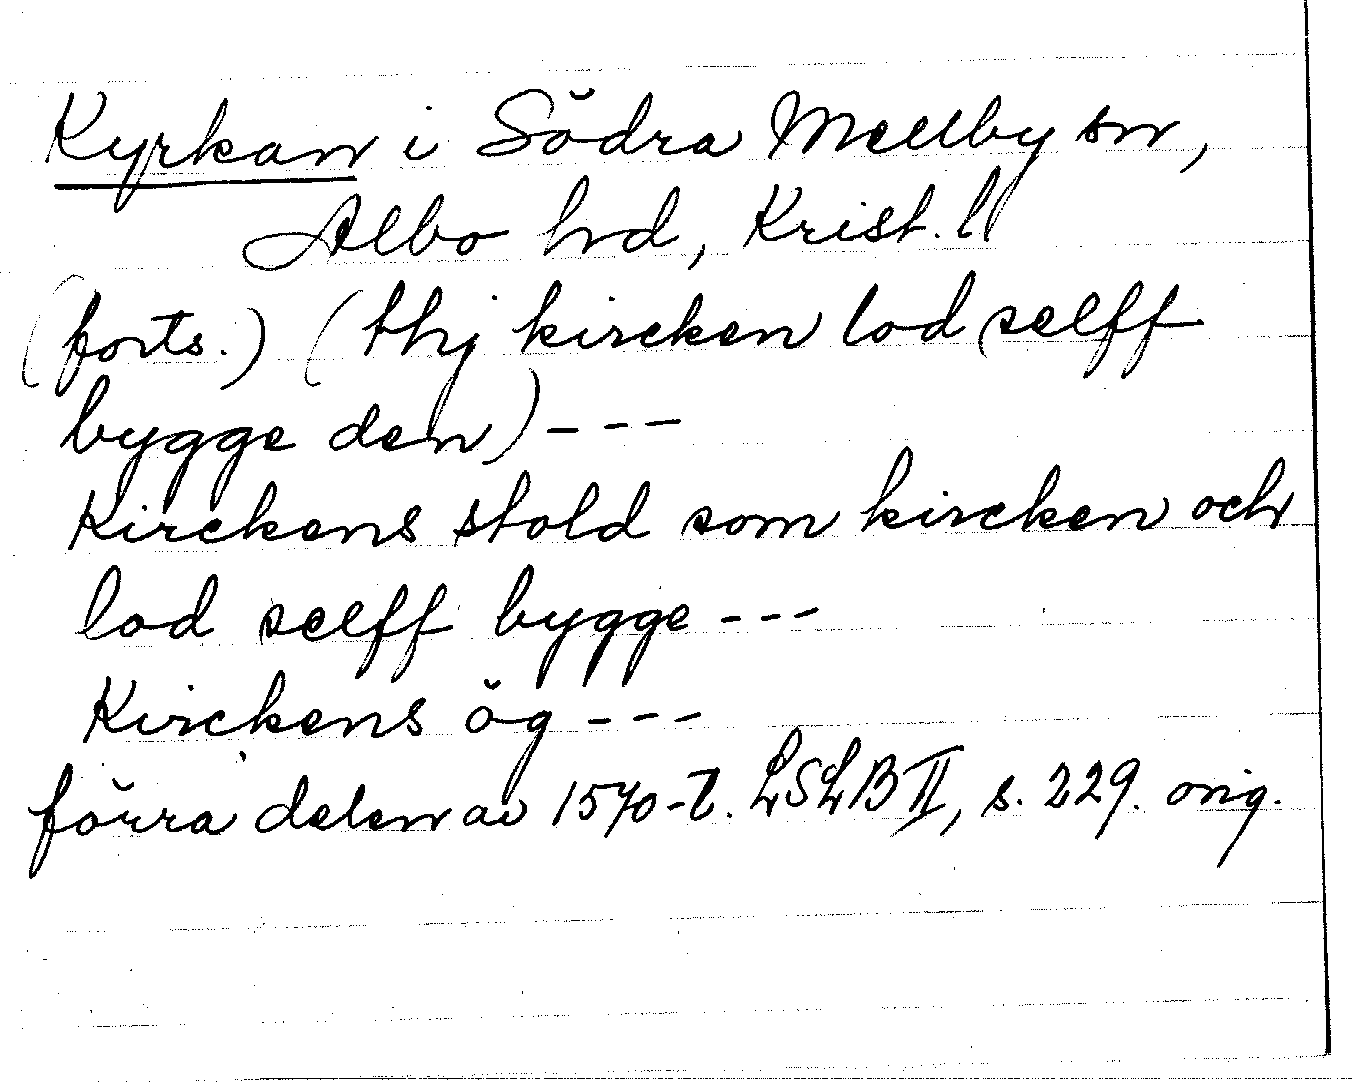 Kyrkan i Södra Mellby sn,
Albo hrd, Krist. l
(forts.) (thj kircken lod selff
bygge den) - - -
Kirckens stold som kircken och
lod selff bygge - - -
Kirckens ög - - -
förra delen av 1570-t. LSLB II, s. 229. orig.